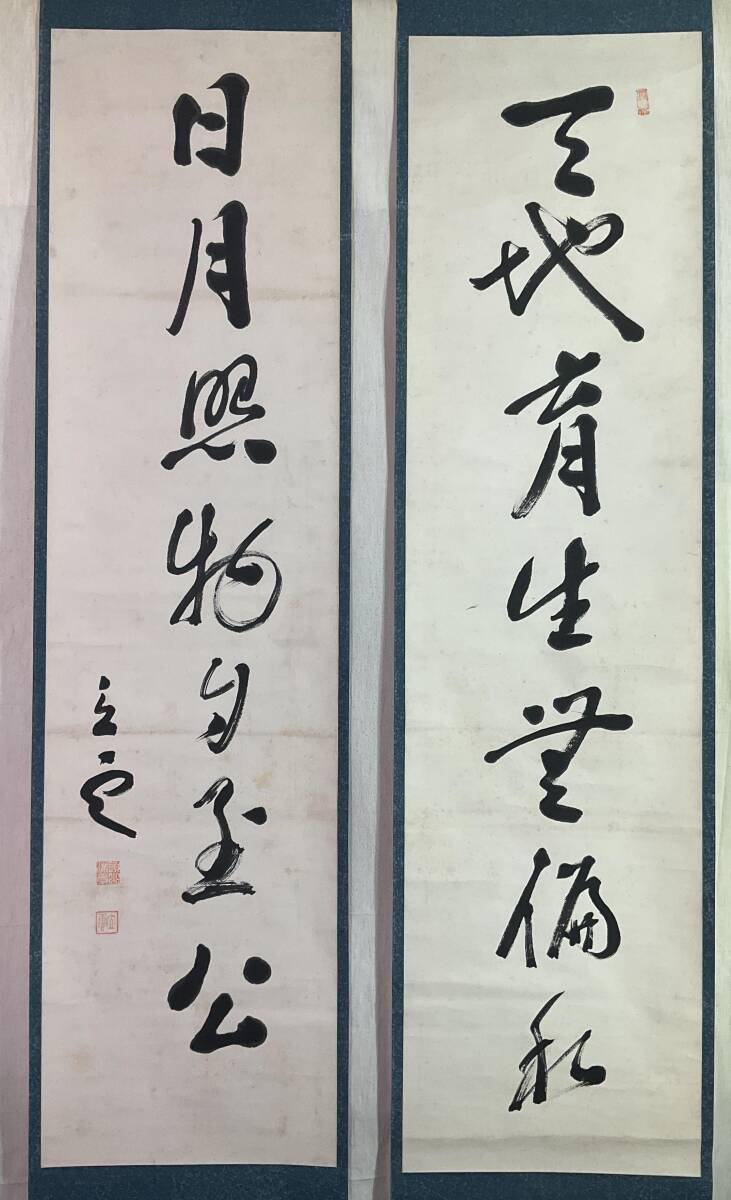 天地育生無偏私
日月照物自至公